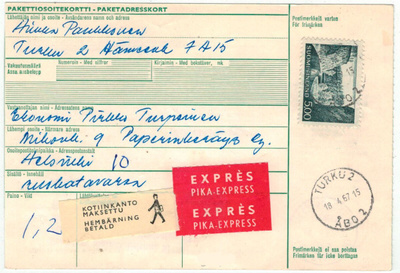 PAKETTIOSOITEKORTTI - PAKETADRESSKORT
Lähettäjän nimi ja osoite - Avsändarens namn och adress
Postimerkeille varten
För frimärken
Turku 2 Hämeenk 7 A 15
Vakuutusmäärä
Numeroin - Med siffror
Kirjaimin - Med bokstäver, mk
Assuransbelopp
SUOMI FINLAND
500
Vastaanottajan nimi - Adressatens namn
Ekonomi Pirkko Turpeinen
Lähempi osoite - Närmare adress
Mikonk. 9 Paperinkeräys Oy.
Osoitepostitoimipaikka - Adresspostanstalt
Helsinki 10
Sisältö - Innehåll
ruokatavaraa
Paino - Vikt
1,2
KOTIINKANTO
MAKSETTU
HEMBÄRNING
BETALD
EXPRÈS
PIKA-EXPRESS
EXPRÈS
PIKA-EXPRESS
TURKU 2
18.4.67.15
ÅBO 2
Postimerkkejä ei saa poistaa
Frimärken får icke borttagas